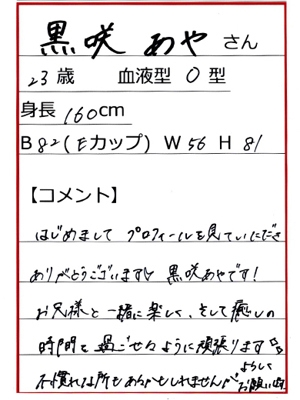 黒咲 あや さん
23歳 血液型 O 型
身長 160cm
B 82(Eカップ) W 56 H 81
【コメント】
はじめまして プロフィールを見ていただき
ありがとうございます♡ 黒咲あやです!
お兄様と一緒に楽しく、そして癒しの
時間を過ごせるように頑張ります☆
不慣れな所もあるかもしれませんが よろしく
お願いします